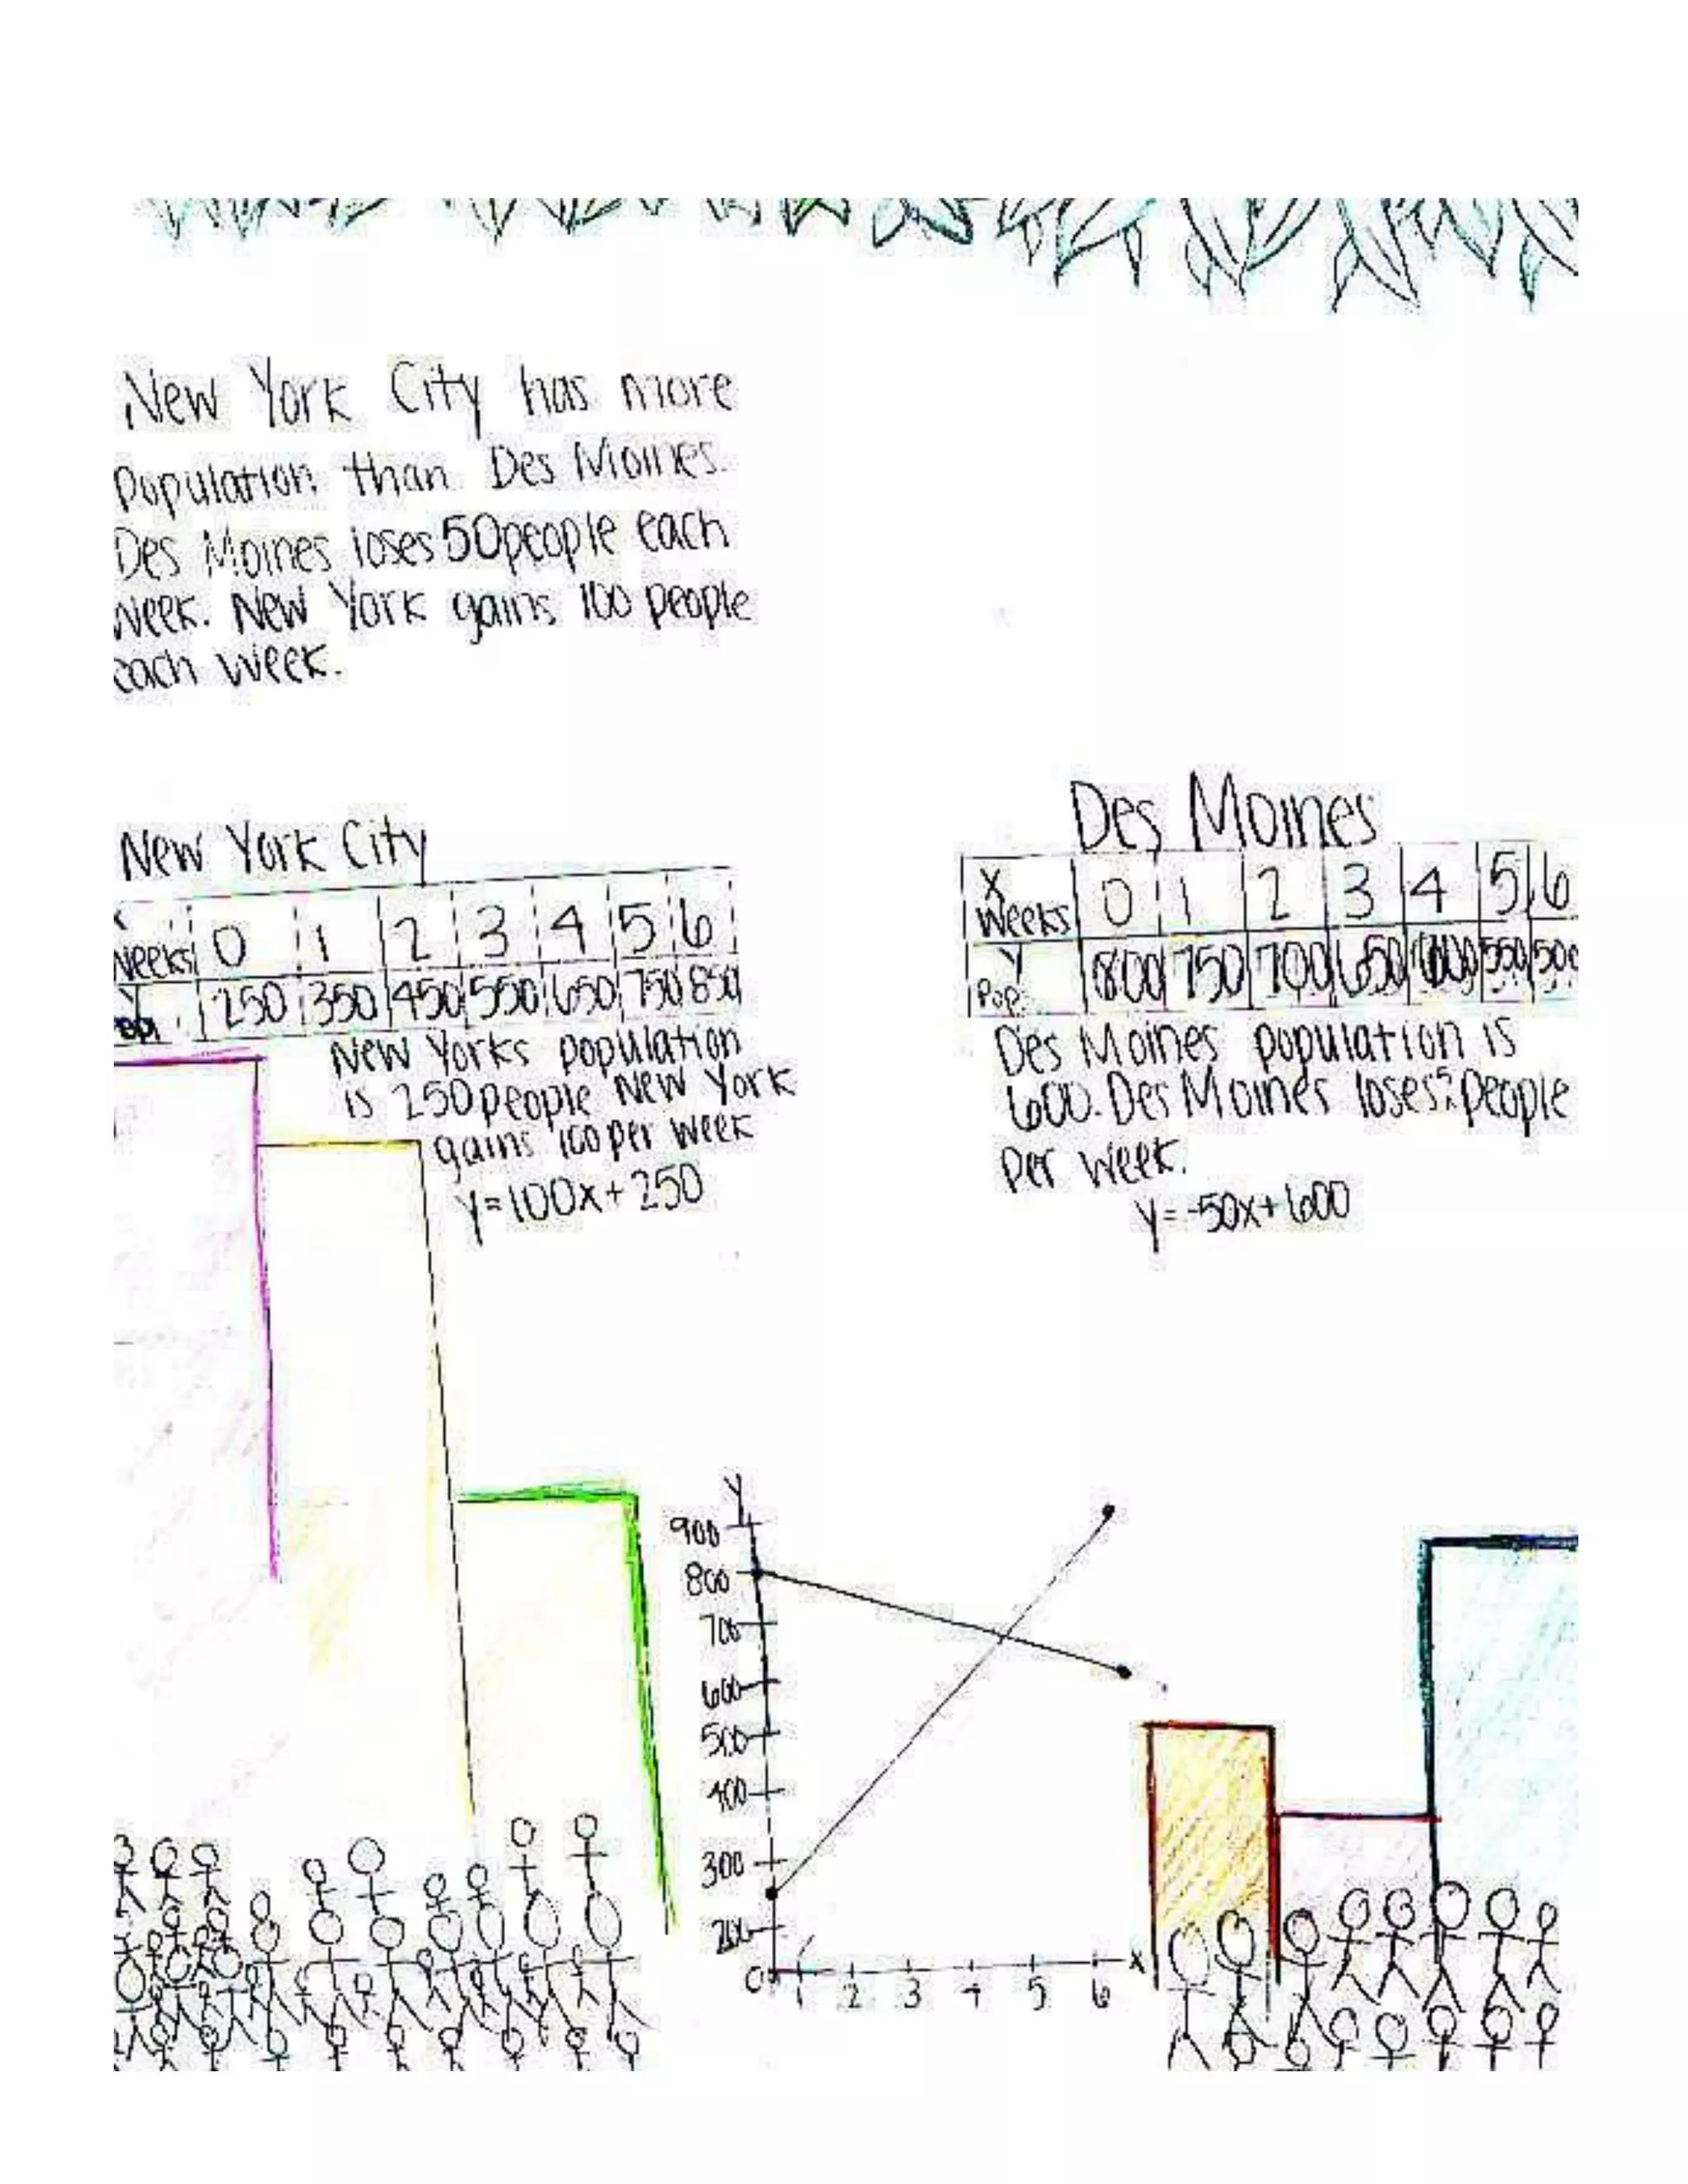 New York City has more
Population than Des Moines.
Des Moines loses 50 people each
week. New York gains 100 people
each week.
New York City
X
Weeks 0 1 2 3 4 5 6
Y
250 350 450 550 650 750 850
New Yorks population
is 250 people New York
gains 100 per week
y=100x+250
Des Moines
X
Weeks 0 1 2 3 4 5 6
Y
Pop. 800 750 700 650 600 550 500
Des Moines population is
600. Des Moines loses people
per week.
y=-50x+600
Y
900
800
700
600
500
400
300
200
0 1 2 3 4 5 6 X